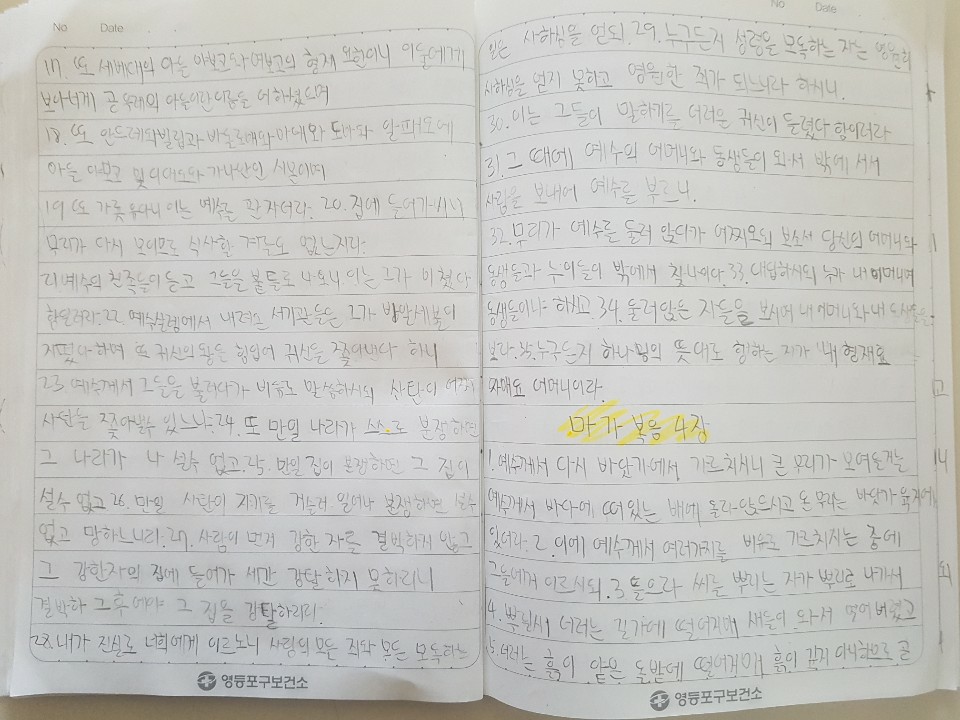 No Date
17. 또 세베대의 아들 야보고와 야보고의 형제 요한이니 이들에게
보아너게 곧 우레의 아들이란 이름을 더하셨으며
18. 또 안드레와 빌립과 바돌로매와 마태와 도마와 알패오에
아들 야보고 및 다대오와 가나안인 시몬이며
19 또 가룟 유다니 이는 예수를 판 자더라. 20. 집에 들어가시니
무리가 다시 모이므로 식사할 겨를도 없는지라
21 예수의 친족들이 듣고 그를 붙들로 나오니 이는 그가 미쳤다
함일러라. 22. 예수살렘에서 내려온 서기관들은 그가 바알세불이
지폈다 하며 또 귀신의 왕을 힘입어 귀신을 쫓아낸다 하니
23 예수께서 그들을 불러다가 비유로 말씀하시되 사탄이 어찌
사탄을 쫓아낼수 있느냐. 24. 또 만일 나라가 스스로 분쟁하면
그 나라가 설수 없고. 25. 만일 집이 분쟁하면 그 집이
설수 없고 26. 만일 사탄이 자기를 거슬러 일어나 분쟁하면 설수
없고 망하느니라. 27. 사람이 먼저 강한 자를 결박하지 않고
그 강한자의 집에 들어가 세간 강탈하지 못하리니
결박하 그후에야 그 집을 강탈하리라.
28. 내가 진실로 너희에게 이르노니 사람의 모든 죄와 모든 모독하는
영등포구보건소
No Date
일은 사하심을 얻되. 29. 누구든지 성령을 모독하는 자는 영원히
사하심을 얻지 못하고 영원한 죄가 되느니라 하시니.
30. 이는 그들이 말하기를 더러운 귀신이 들렸다 함이러라
31. 그 때에 예수의 어머니와 동생들이 와서 밖에 서서
사람을 보내에 예수를 부르니.
32. 무리가 예수를 둘러 앉다가 여짜오되 보소서 당신의 어머니와
동생들과 누이들이 밖에서 찾나이다. 33. 대답하시되 누가 내 어머니며
동생들이냐 하시고 34. 둘러앉은 자들을 보시며 내 어머니와 내 동생들을
보라. 35. 누구든지 하나님의 뜻대로 행하는 자가 내 형재요
자매요 어머니이라.
마가복음 4장
1. 예수께서 다시 바닷가에서 가르치시니 큰 무리가 모여들거늘
예수께서 바다에 떠있는 배에 올라 앉으시고 온 무리는 바닷가 육지에
있더라. 2. 이에 예수께서 여러가지를 비유로 가르치시는 중에
그들에게 이르시되. 3 들으라 씨를 뿌리는 자가 뿌리로 나가서
4. 뿌릴새 더러는 길가에 떨어지매 새들이 와서 먹어 버렸고
5. 더러는 흙이 얕은 돌밭에 떨어지매 흙이 깊지 아니하므로 곧
영등포구보건소